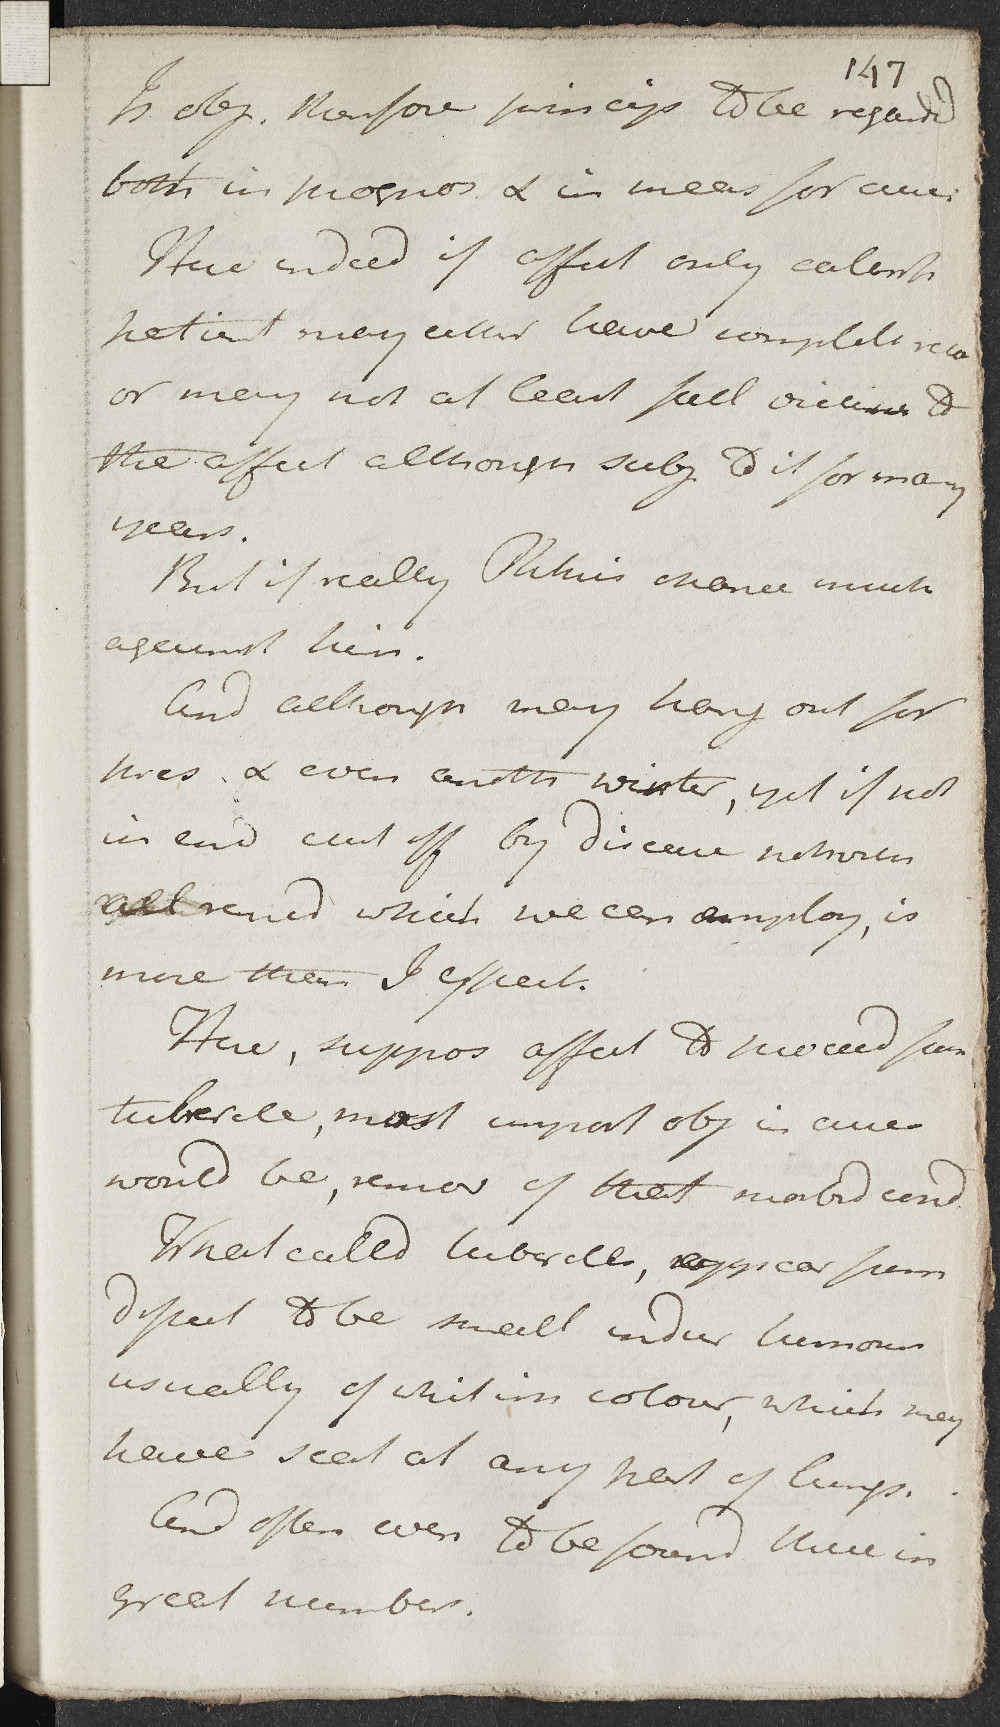 147
Is obj. therefore princip to be regard
both in prognos & in meas for cure.
Here indeed if affect only catarrh
patient may either have complete reco
or may not at least fall victim to
the affect although subj to it for many
years.
But if really Phthisis chance much
against him.
And although may hang out for
pres. & even anoth winter, yet if not
in end cut off by disease notwith
all remed which we can employ, is
more than I expect.
Here, suppos affect to proceed from
tubercle, most import obj in cure
would be, remov of that morbid cond
What called tubercles, appear from
dissect to be small indur tumours
usually of whitish colour, which may
have seat at any part of lungs.
And often even to be found there in
great number.